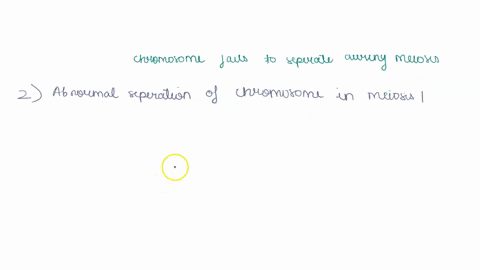 chromosome fails to seperate during meiosis
2) Abnormal seperation of chromosome in meiosis |